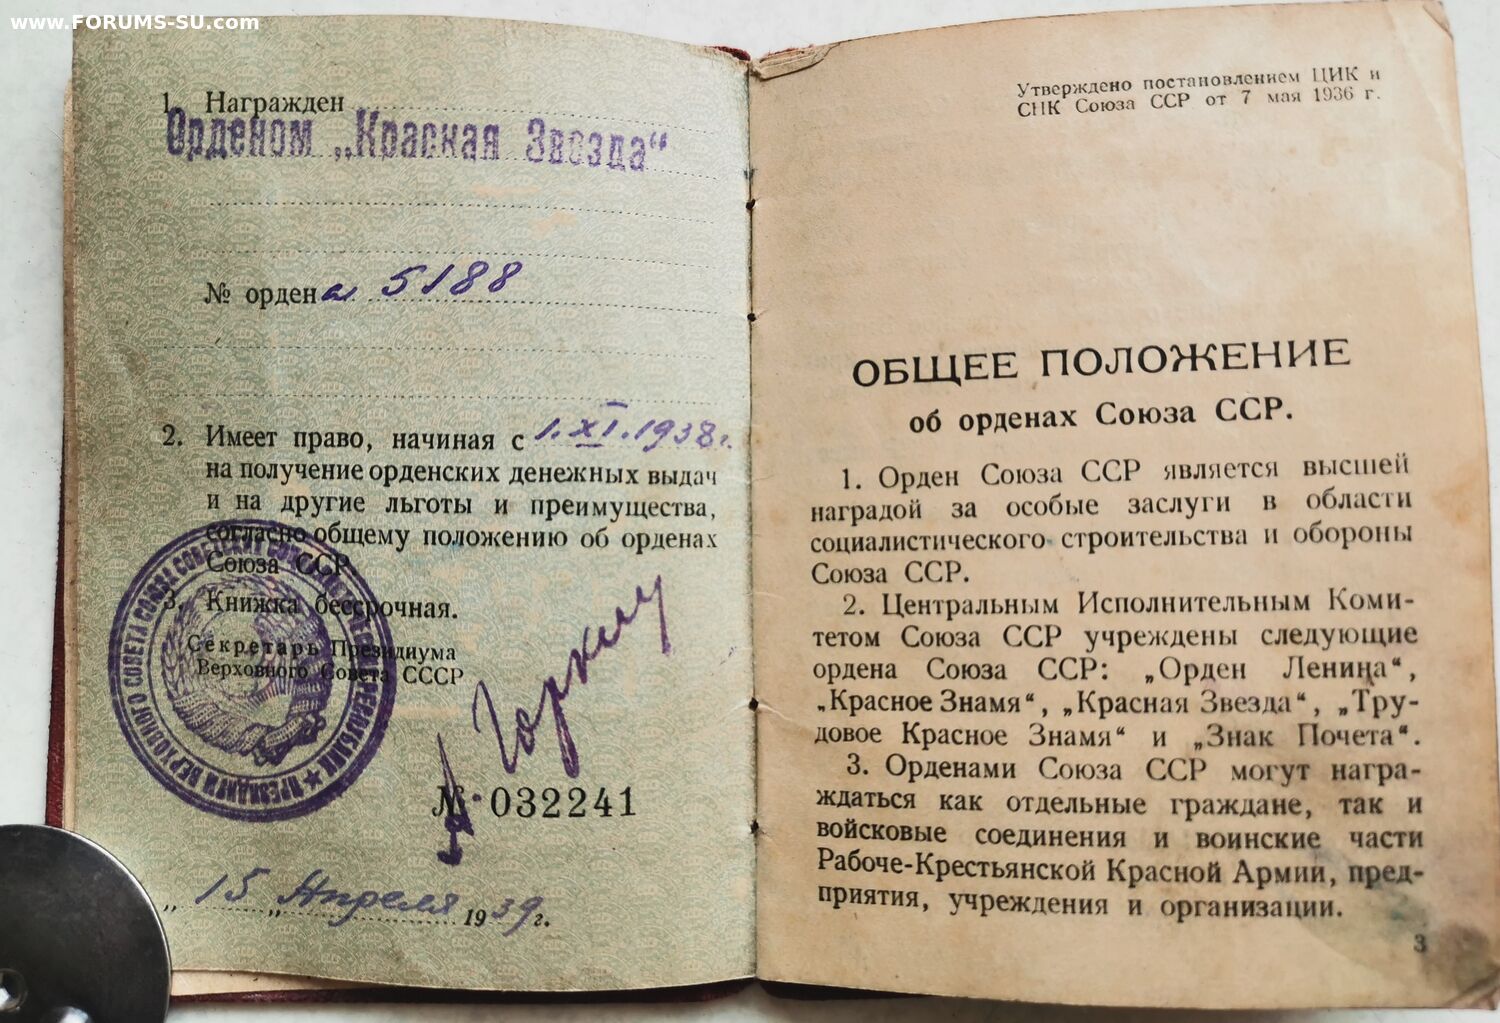 www.FORUMS-SU.com
1. Награжден
Орденом „Красная Звезда“
№ ордена 5188
2. Имеет право, начиная с 1.XI.1938г.
на получение орденских денежных выдач
и на другие льготы и преимущества,
согласно общему положению об орденах
Союза ССР
3. Книжка бессрочная.
Секретарь Президиума
Верховного Совета СССР
А Горкин
№ 032241
„ 15 „ Апреля 1939 г.
ПРЕЗИДИУМ ВЕРХОВНОГО СОВЕТА СОЮЗА СОВЕТСКИХ СОЦИАЛИСТИЧЕСКИХ РЕСПУБЛИК
Утверждено постановлением ЦИК и
СНК Союза ССР от 7 мая 1936 г.
ОБЩЕЕ ПОЛОЖЕНИЕ
об орденах Союза ССР.
1. Орден Союза ССР является высшей
наградой за особые заслуги в области
социалистического строительства и обороны
Союза ССР.
2. Центральным Исполнительным Коми-
тетом Союза ССР учреждены следующие
ордена Союза ССР: „Орден Ленина“,
„Красное Знамя“, „Красная Звезда“, „Тру-
довое Красное Знамя“ и „Знак Почета“.
3. Орденами Союза ССР могут награ-
ждаться как отдельные граждане, так и
войсковые соединения и воинские части
Рабоче-Крестьянской Красной Армии, пред-
приятия, учреждения и организации.
3